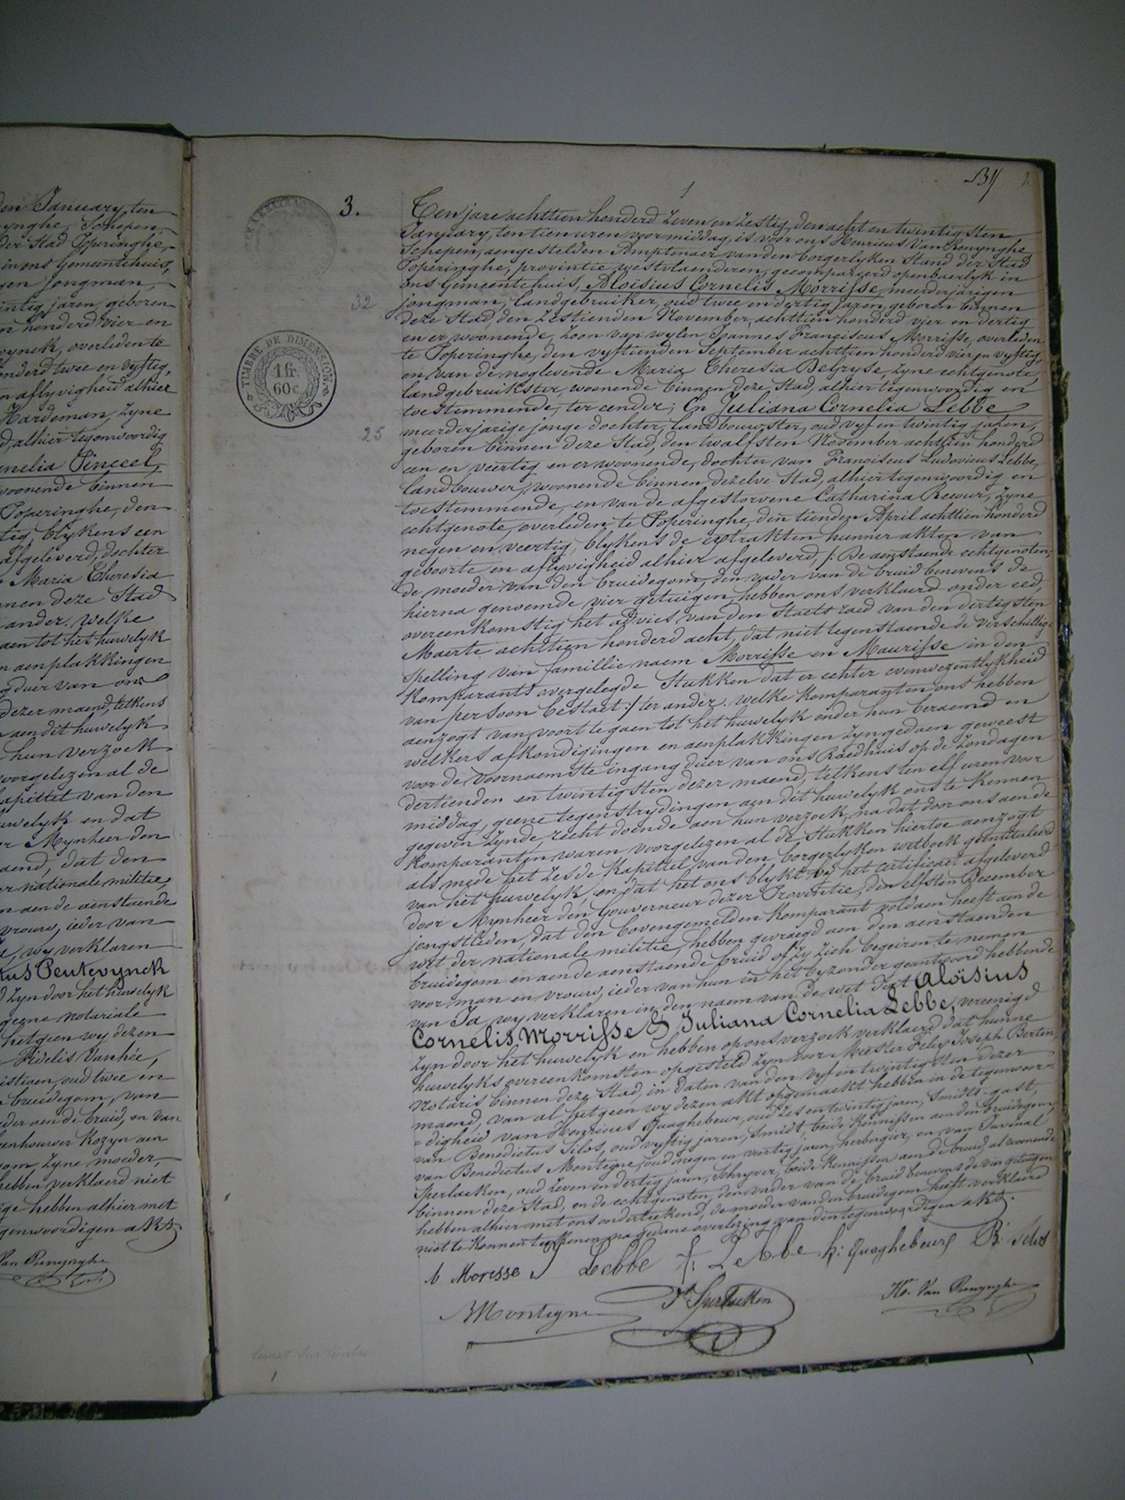 den January ten
der Stad Poperinghe
in ons Gemeentehuis,
jongman,
jaren, geboren
honderd vier en
overleden te
honderd twee en vyftig,
aflyvigheid alhier
Hardeman, zyne
alhier tegenwoordig
Cornelia Pinceel,
woonende binnen
Poperinghe, den
blykens een
afgeleverd, dochter
Maria Theresia
binnen deze Stad
ander. welke
gaen tot het huwelyk
aenplakkingen
duer van ons
dezer maend, telkens
aen dit huwelyk
hun verzoek
voorgelezen al de
kapittel van den
huwelyk en dat
Mynheer den
maend, dat den
der nationale militie,
aen de aenstaende
vrouw, ieder van
wy verklaren
Peutevynck
zyn door het huwelyk
geene notariale
hetgeen wy dezen
Fidelis Vanhée,
oud twee en
bruidegom, van
vader van de bruid, en van
Kozyn aen
zyne moeder,
hebben verklaerd niet
hebben alhier met
tegenwoordigen akt.
Van Renynghe
3.
32
25
TIMBRE DE DIMENSION.
1 fr.
60 c.
Ten jare achttien honderd zeven en zestig, den acht en twintigsten
January, ten tien uren voormiddag, is voor ons Henricus Van Renynghe
Schepen, aengestelden Amptenaer van den borgerlyken Stand der Stad
Poperinghe, provintie westvlaenderen, gecompareerd openbaerlyk in
ons Gemeentehuis, Aloisius Cornelis Morrisse, meerderjarigen
jongman, landgebruiker, oud twee en dertig jaren, geboren binnen
deze Stad, den zestienden November achttien honderd vier en dertig
en er woonende, zoon van wylen Joannes Franciscus Morrisse, overleden
te Poperinghe, den vyftienden September achttien honderd vier en vyftig,
en van de noglevende Maria Theresia Degryse, zyne echtgenote
landgebruikster, woonende binnen deze Stad, alhier tegenwoordig en
toestemmende, ter eender; En Juliana Cornelia Lebbe,
meerderjarige jonge dochter, landbouwster, oud vyf en twintig jaren,
geboren binnen deze Stad, den twalfsten November achttien honderd
een en veertig en er woonende, dochter van Franciscus Ludovicus Lebbe,
landbouwer, woonende binnen dezelve Stad, alhier tegenwoordig en
toestemmende, en van de afgestorvene Catharina, zyne
echtgenote, overleden te Poperinghe, den tienden April achttien honderd
negen en veertig, blykens de extrakten hunner akten van
geboorte en aflyvigheid alhier afgeleverd, /: De aenstaende echtgenoten,
de moeder van den bruidegom, den vader van de bruid benevens de
hierna genoemde vier getuigen, hebben ons verklaerd onder eed,
overeenkomstig het advies van den Staetsraed van den dertigsten
Maerte achttien honderd acht, dat niet tegenstaende de verschillige
spelling van famillie naem Morrisse en Maurisse in den
komparants overgelegde Stukken dat er echter eenwezentlykheid
van persoon bestaet :/ ter ander. welke komparanten ons hebben
aenzogt van voort te gaen tot het huwelyk onder hun beraemd en
welkers afkondigingen en aenplakkingen zyn gedaen geweest
voor de voornaemste ingang duer van ons Raedhuis op de Zondagen
dertienden en twintigsten dezer maend, telkens ten elf uren voor
middag, geene tegenstrydingen aen dit huwelyk ons te kennen
gegeven zynde, recht doende aen hun verzoek, na dat door ons aen de
komparanten waren voorgelezen al de Stukken hiertoe aenzogt
als mede het zesde kapittel van den borgerlyken wetboek geintituleerd
van het huwelyk, en dat het ons blykt by het certificaet afgeleverd
door Mynheer den Gouverneur dezer Provintie, den elfsten December
jongstleden, dat den bovengemelden komparant voldaen heeft aen de
wet der nationale militie, hebben gevraegd aen den aenstaenden
bruidegom en aen de aenstaende bruid of zy zich begeiren te nemen
voor man en vrouw, ieder van hun in het byzonder geantwoord hebbende
van Ja, wy verklaren in den naem van de wet dat Aloïsius
Cornelis Morrisse & Juliana Cornelia Lebbe, vereenigd
zyn door het huwelyk en hebben op ons verzoek verklaerd dat hunne
huwelyks overeenkomsten opgesteld zyn voor Meester Felix Joseph Bertin,
Notaris binnen deze Stad, in daten van den vyf en twintigsten dezer
maend, van al hetgeen wy dezen akt opgemaekt hebben in de tegenwoor-
=digheid van Henricus Quaghebeur, oud zes en twintig jaren, Smidts-gast,
van Benedictus Silos, oud vyftig jaren, Smidt, beide kennissen aen den bruidegom,
van Benedictus Montegne, oud negen en veertig jaren, herbergier, en van Juvenal
Sperlaeken, oud zeven en dertig jaren, Schryver, beide kennissen aen de bruid al woonende
binnen deze Stad, en de echtgenoten, den vader van de bruid benevens de vier getuigen
hebben alhier met ons onderteekend, de moeder van den bruidegom heeft verklaerd
niet te konnen teekenen, na gedane overlezing van den tegenwoordigen akt.
Moresse J Lebbe f: Lebbe h: Quaghebeur B: Silos
Montegne Jl Sperlaeken He. Van Renynghe